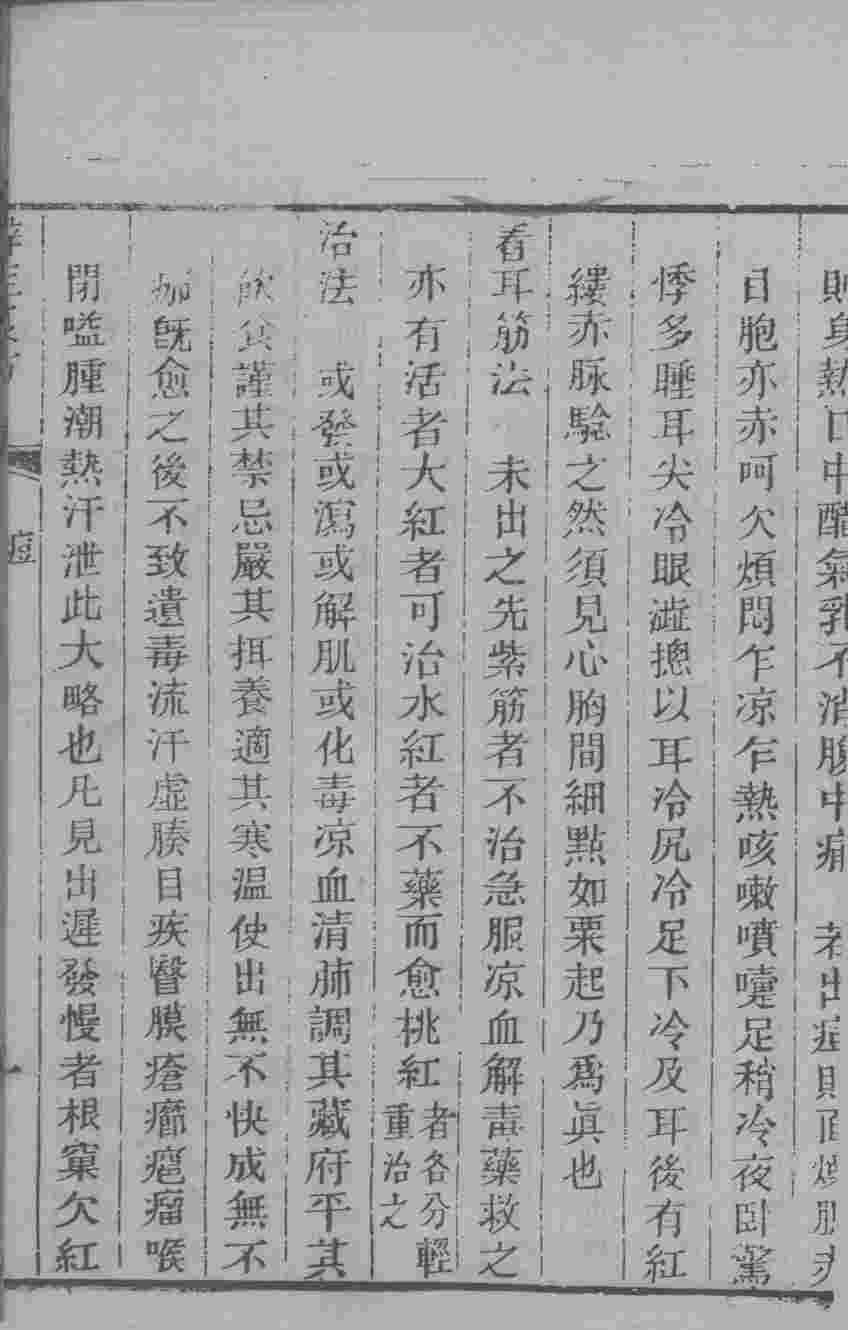 則身熱口中醋氣乳不消腹中痛　若出痘則面燥腮赤
目胞亦赤呵欠煩悶乍凉乍熱咳嗽噴嚏足稍冷夜卧驚
悸多睡耳尖冷眼澁摠以耳冷尻冷足下冷及耳後有紅
縷赤脉驗之然須見心胸間細點如粟起乃爲眞也
看耳筋法　未出之先紫筋者不治急服凉血解毒藥救之
亦有活者大紅者可治水紅者不藥而愈桃紅者各分輕重治之
治法　或發或瀉或解肌或化毒凉血清肺調其藏府平其
飲食謹其禁忌嚴其揖養適其寒温使出無不快成無不
痂既愈之後不致遺毒流汗虛腠目疾瞖膜瘡癤瘤喉
閉嗌腫潮熱汗泄此大略也凡見出遲發慢者根窠欠紅
痘